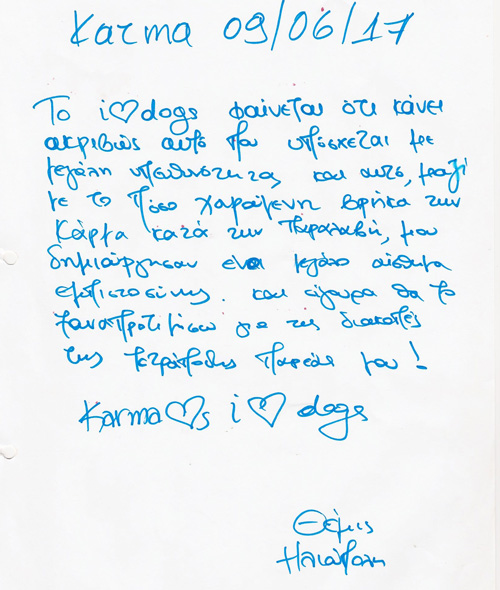 Karma 09/06/17
Το i♡dogs φαίνεται ότι κάνει
ακριβώς αυτό που υπόσκεται με
μεγάλη υπευθυνότητας και αυτό, μαζί
με το πόσο χαρούμενη βρήκα την
Κάρμα κατά την παραλαβή, μου
δημιούργησαν ένα μεγάλο αίσθημα
εμπιστοσύνης. και σίγουρα θα το
ξαναπροτιμίσω για τις διακοπές
της τετράποδης παρέας μου!
Karma♡s i♡dogs
Θέμις